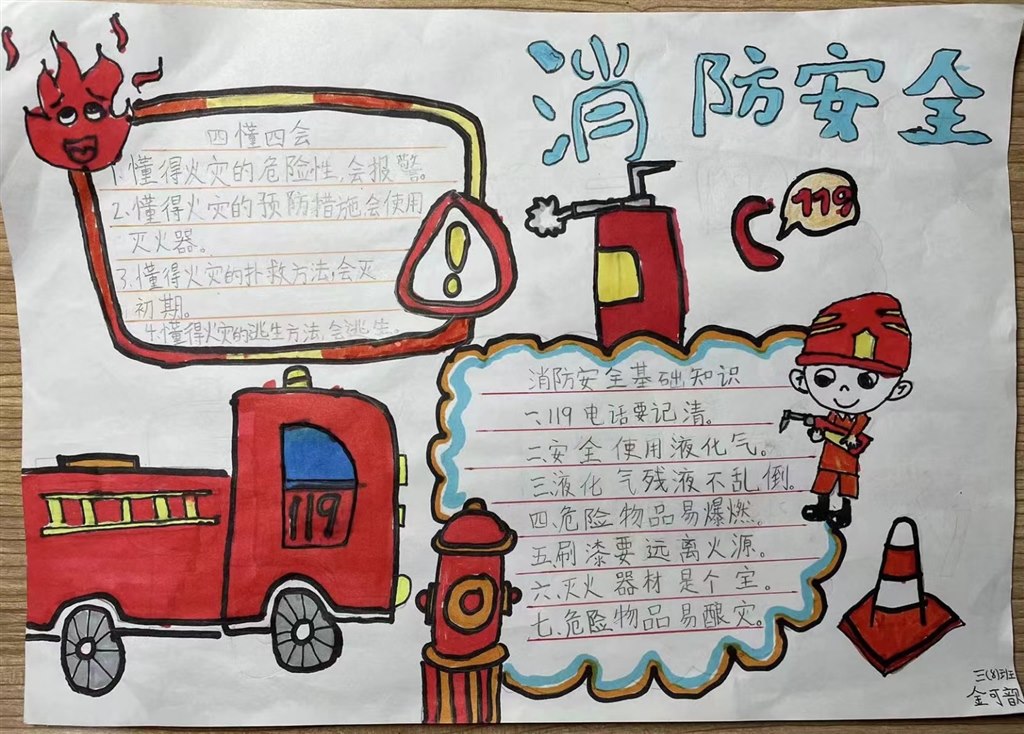 消防安全
四懂四会
1.懂得火灾的危险性,会报警。
2.懂得火灾的预防措施会使用
灭火器。
3.懂得火灾的扑救方法,会灭
初期。
4.懂得火灾的逃生方法,会逃生。
119
消防安全基础知识
一、119电话要记清。
二、安全使用液化气。
三、液化气残液不乱倒。
四、危险物品易爆燃。
五、刷漆要远离火源。
六、灭火器材是个宝。
七、危险物品易酿灾。
119
三(8)班
金可韵